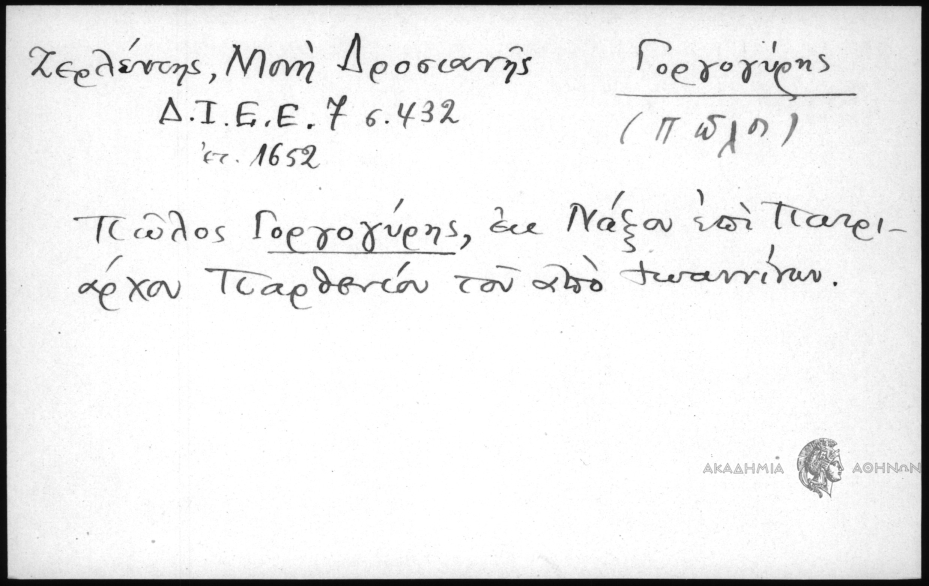 Ζερλέντης, Μονὴ Δροσιανῆς
Δ.Ι.Ε.Ε. 7 σ. 432
ἐτ. 1652
Γοργογύρης
(Πῶλος)
Πῶλος Γοργογύρης, ἐκ Νάξου ἐπὶ Πατρι-
άρχου Παρθενίου τοῦ ἀπὸ Ἰωαννίνων.
ΑΚΑΔΗΜΙΑ ΑΘΗΝΩΝ